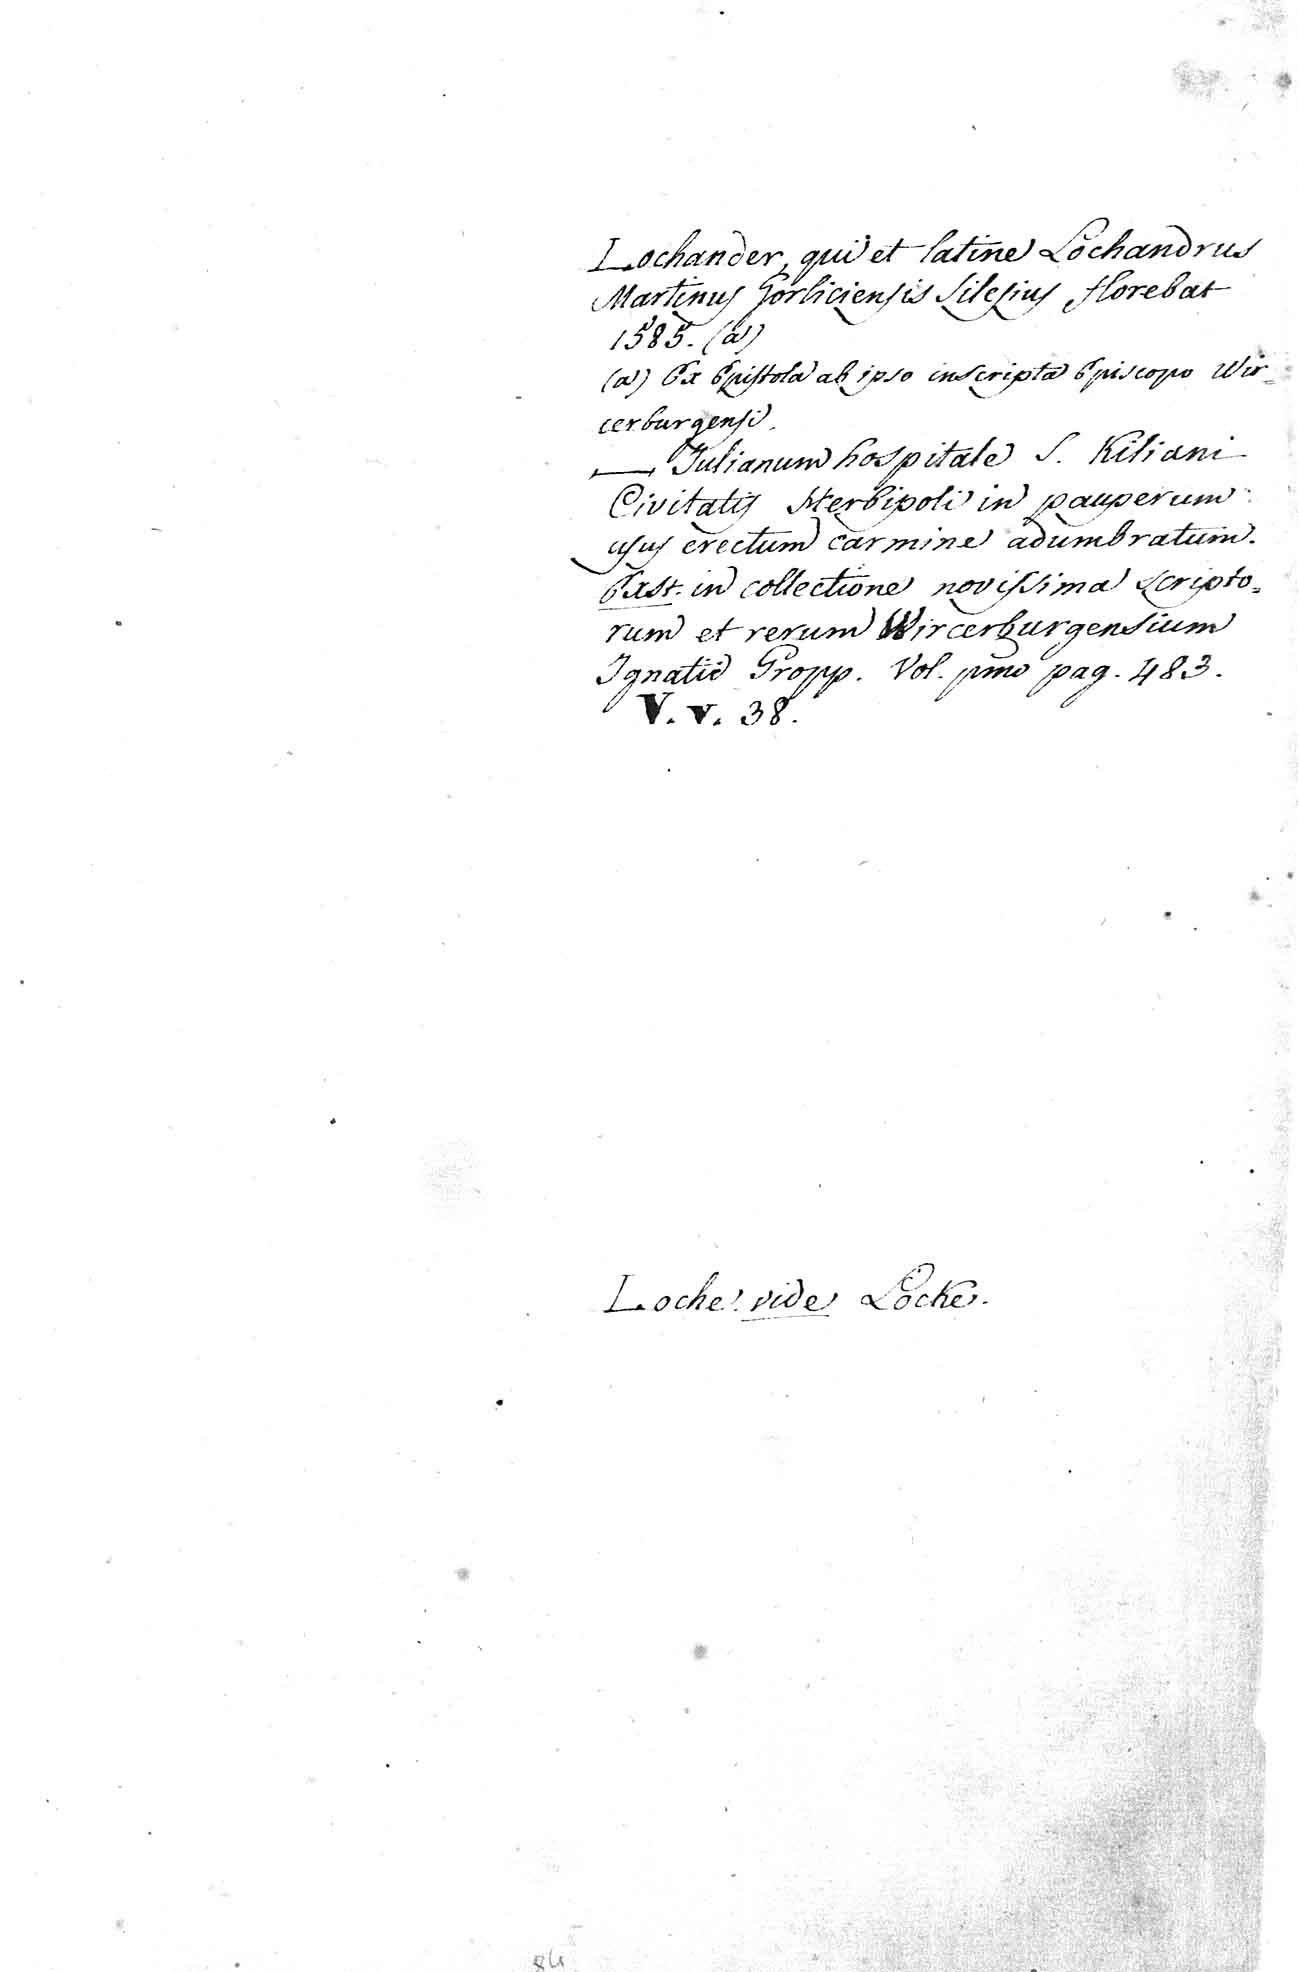 Lochander, qui et latine Lochandrus
Martinus Gorliciensis Silesius florebat
1585. (a)
(a) Ex Epistola ab ipso inscripta Episcopo Wir=
cerburgensi.
— Iulianum hospitale S. Kiliani
Civitatis Herbipoli in pauperum
usus erectum carmine adumbratum.
Exst. in collectione novissima scripto=
rum et rerum Wircerburgensium
Ignatii Gropp. Vol. pmo pag. 483.
V. v. 38.
Loche. vide Locke.
84